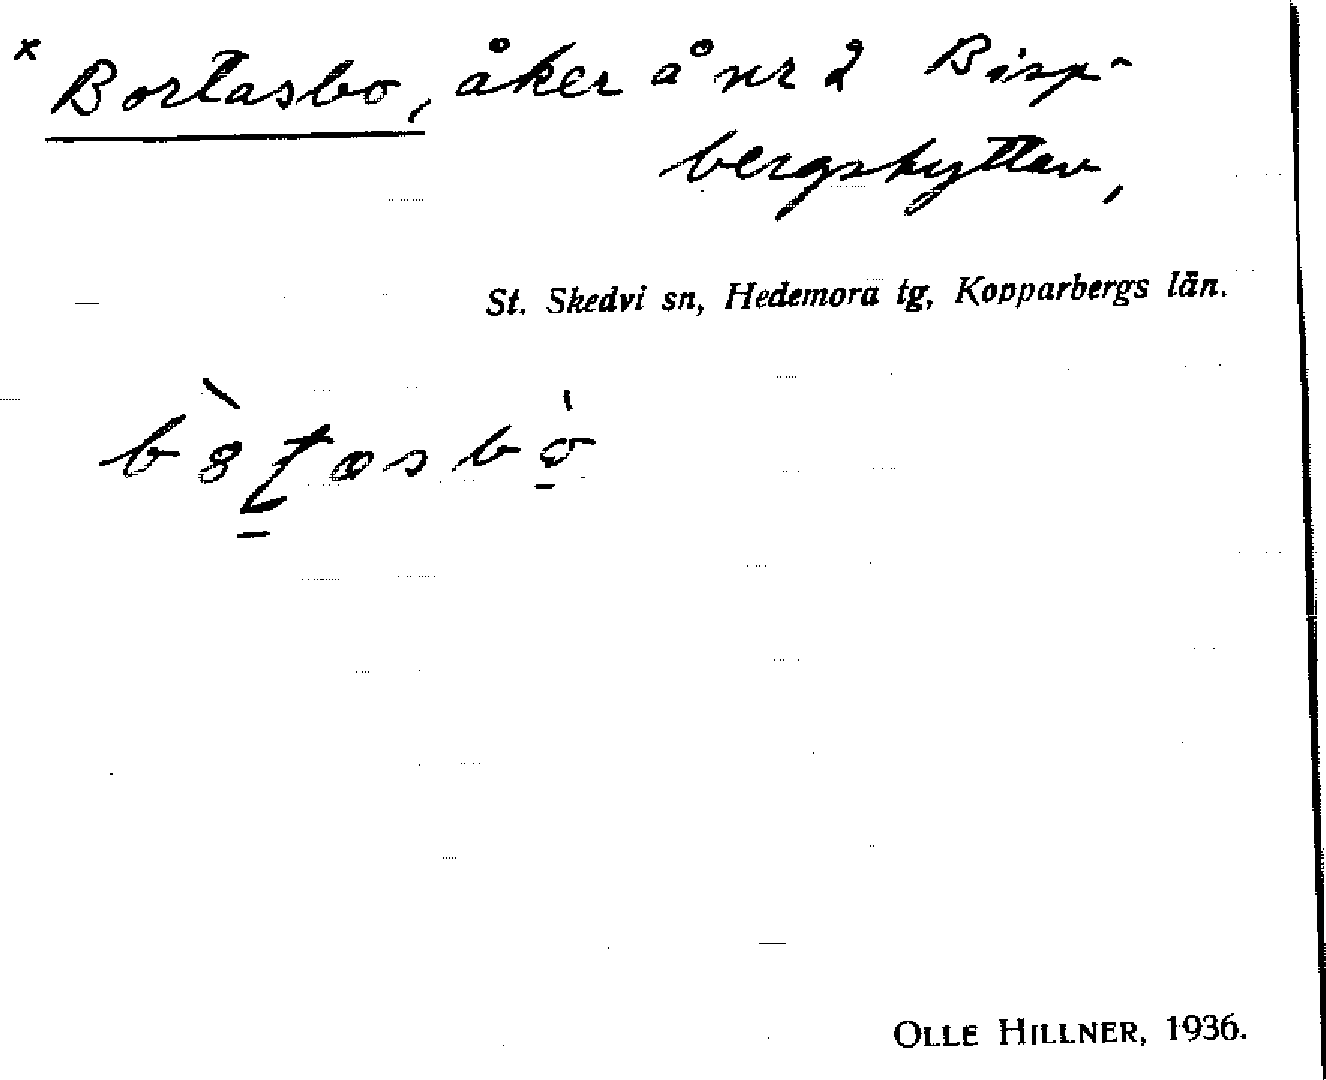 x Bortasbo, åker å nr 2 Bisp-
bergshyttan,
St. Skedvi sn, Hedemora tg, Kopparbergs län.
OLLE HILLNER, 1936.